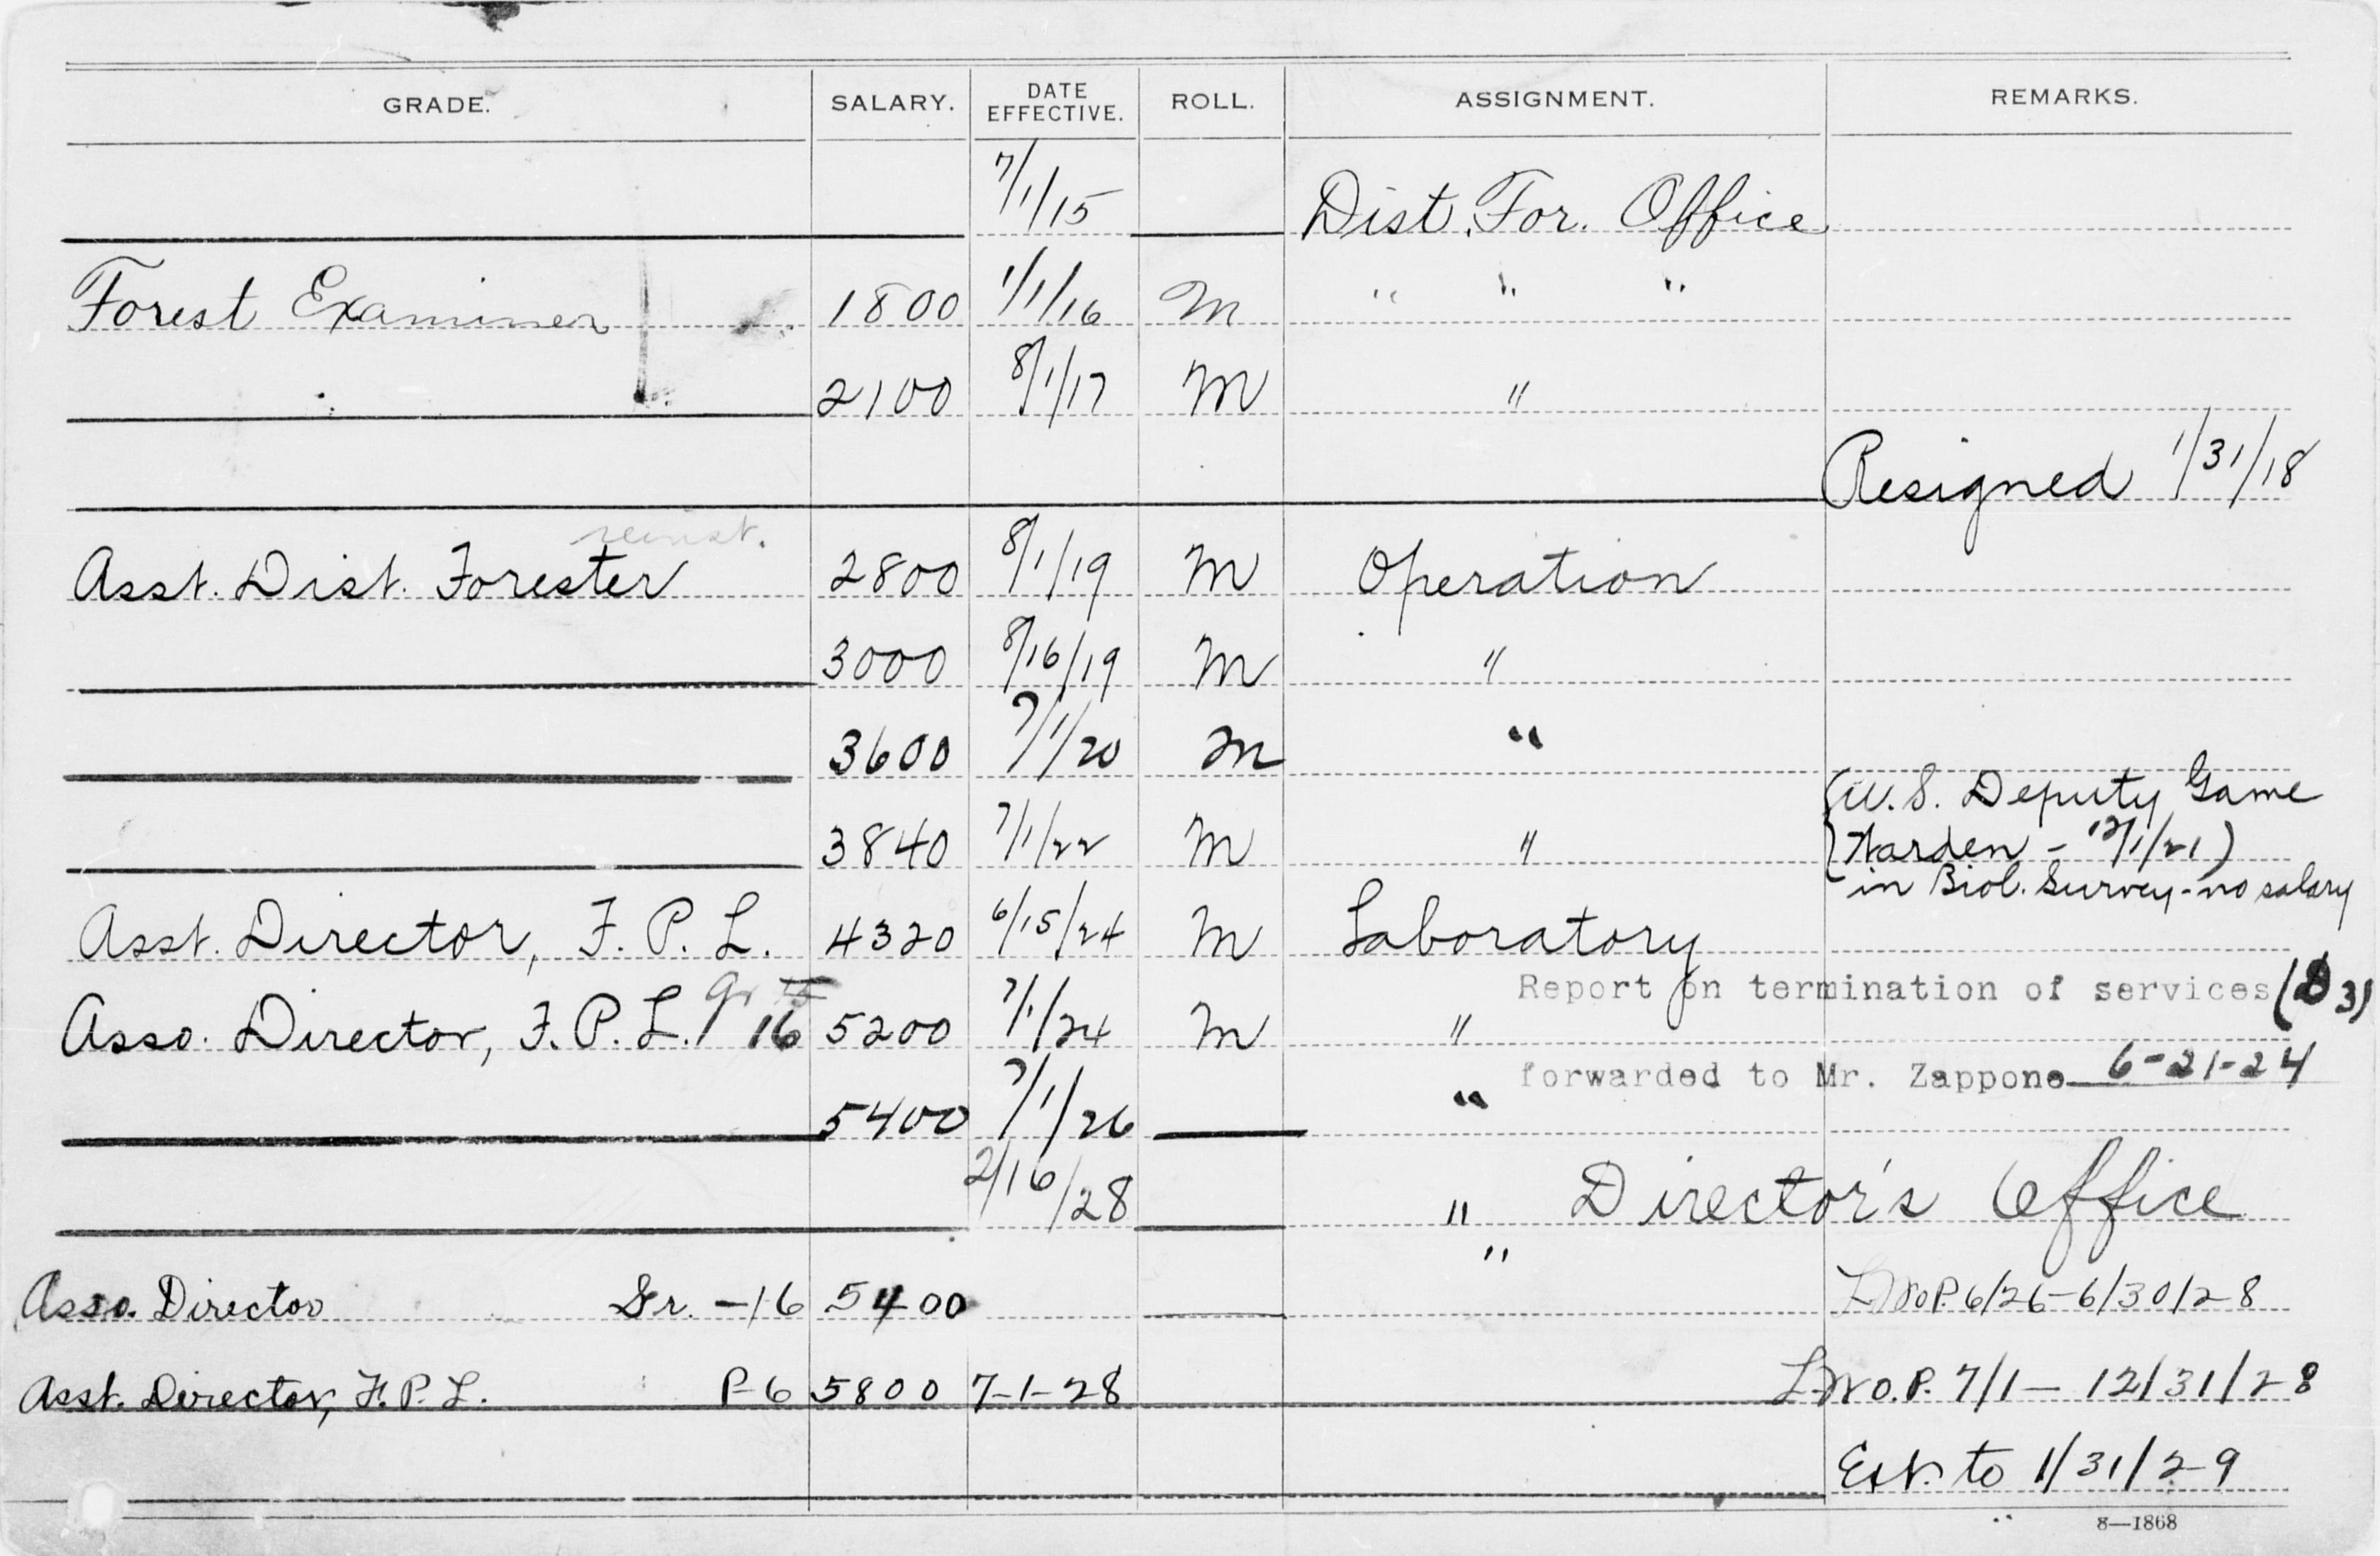 GRADE. SALARY. DATE EFFECTIVE. ROLL. ASSIGNMENT. REMARKS.
7/1/15 Dist. For. Office
Forest Examiner 1800 1/1/16 M " " "
2100 8/1/17 M "
Resigned 1/31/18
reinst.
Asst. Dist. Forester 2800 8/1/19 M Operation
3000 8/16/19 M "
3600 7/1/20 M "
(U.S. Deputy Game
3840 7/1/22 M " Warden - 12/1/21)
in Biol. Survey - no salary
Asst. Director, F. P. L. 4320 6/15/24 M Laboratory
Report on termination of services (D3)
Asso. Director, F. P. L. Gr 15 16 5200 7/1/24 M "
forwarded to Mr. Zappone 6-21-24
5400 7/1/26 "
2/16/28 " Director's Office
"
Asso. Director Gr. -16 5400 LWoP. 6/26-6/30/28
Asst. Director, F. P. L. P-6 5800 7-1-28 LWO.P. 7/1 - 12/31/28
Ext. to 1/31/29
8—1868